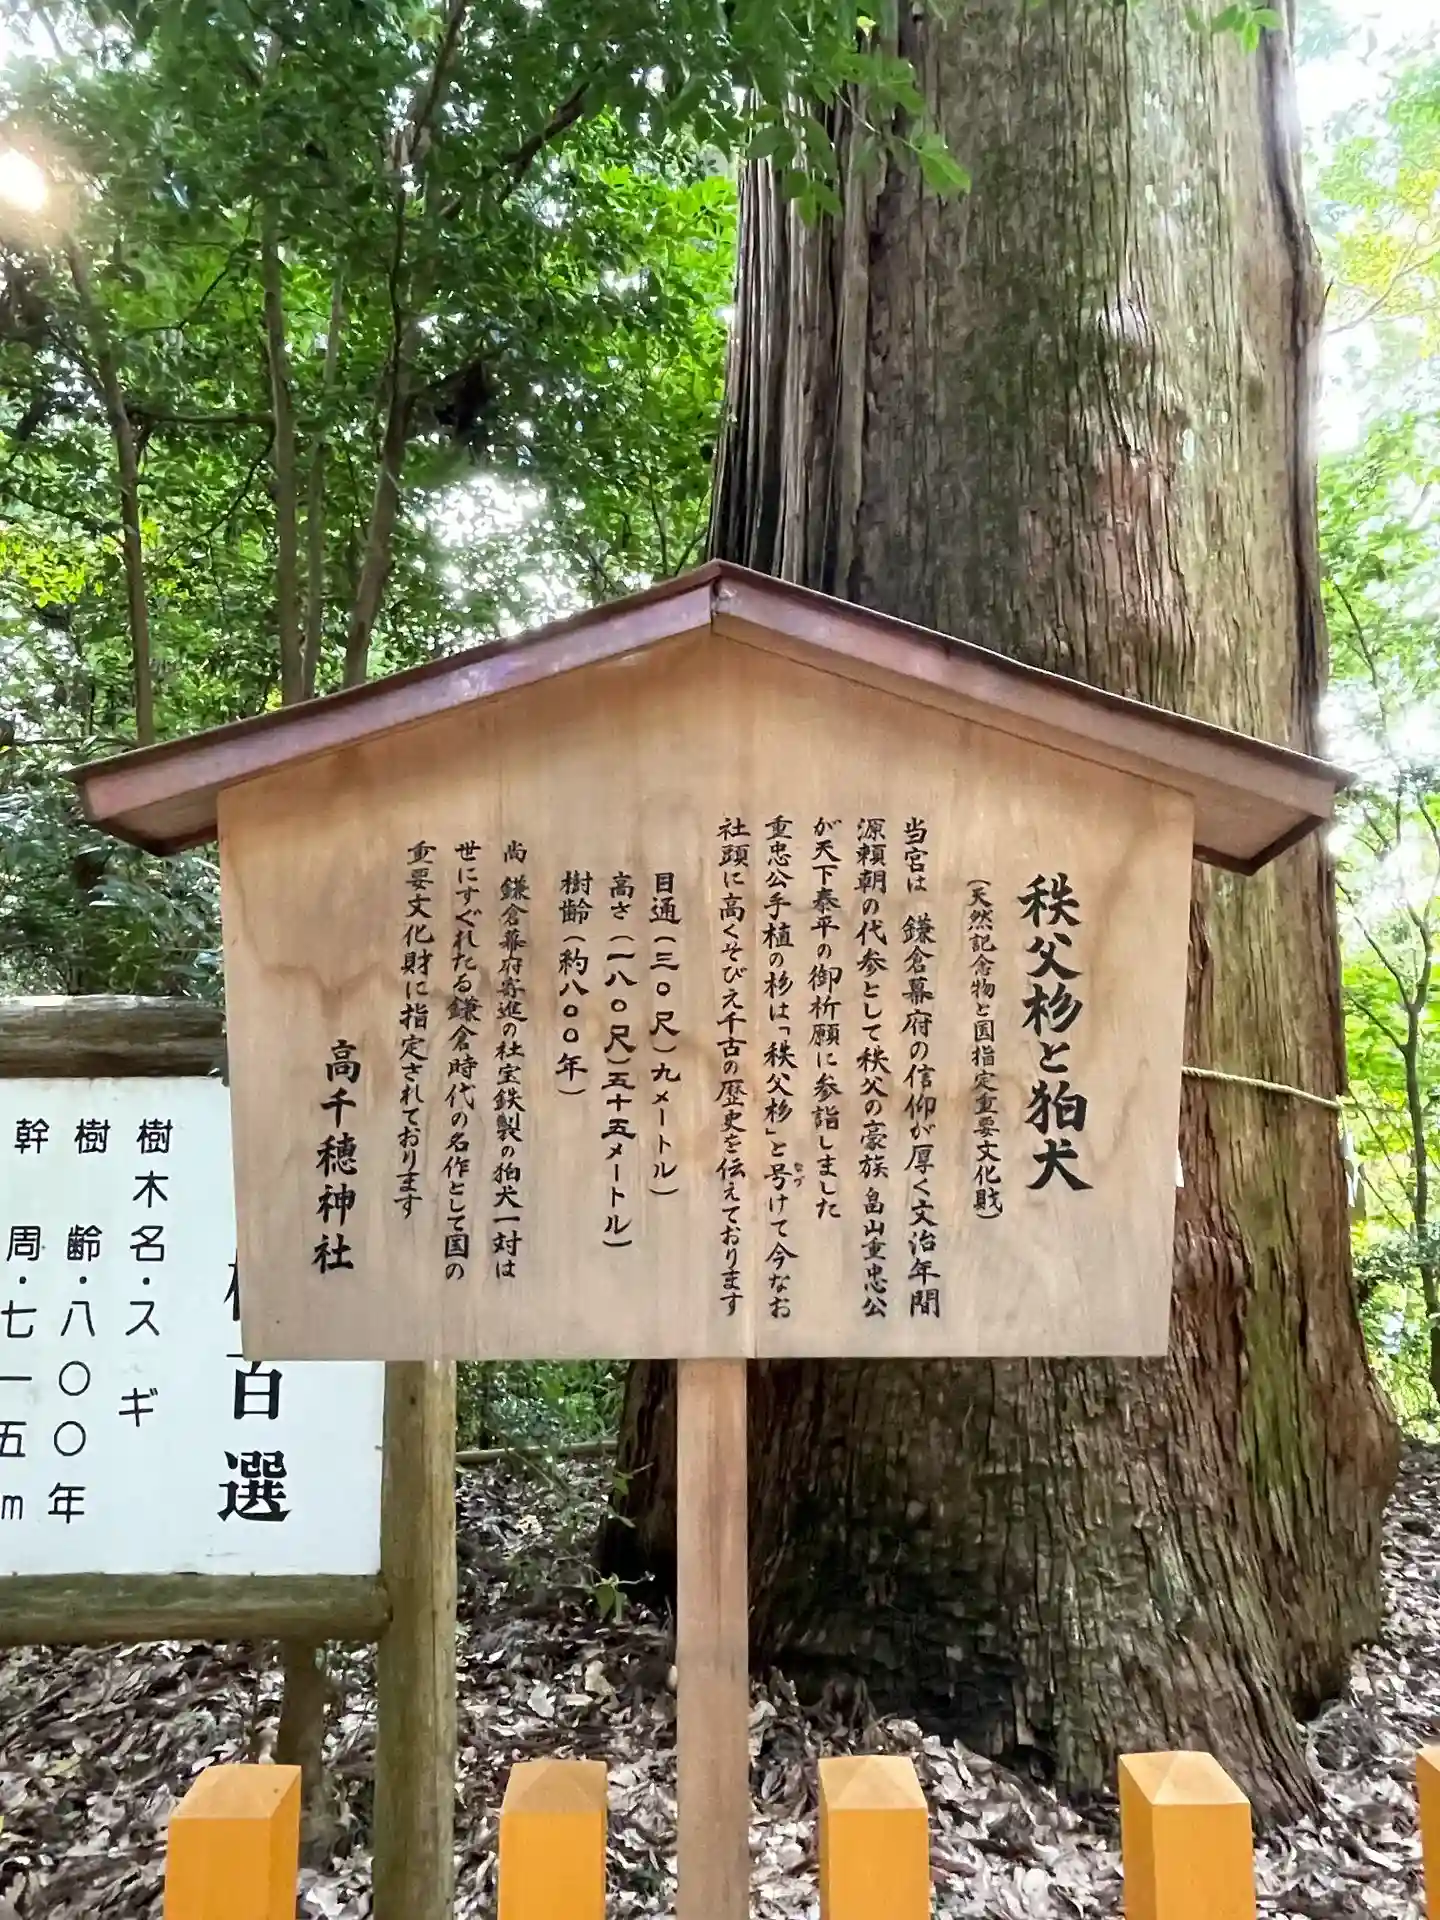 秩父杉と狛犬
(天然記念物と国指定重要文化財)
当宮は 鎌倉幕府の信仰が厚く文治年間
源頼朝の代参として秩父の豪族 畠山重忠公
が天下泰平の御祈願に参詣しました
重忠公手植の杉は「秩父杉」と号けて今なお
なづ
社頭に高くそびえ千古の歴史を伝えております
目通(三〇尺)九メートル)
高さ(一八〇尺)五十五メートル)
樹齢(約八〇〇年)
尚 鎌倉幕府寄進の社宝鉄製の狛犬一対は
世にすぐれたる鎌倉時代の名作として国の
重要文化財に指定されております
高千穂神社
百選
樹木名・スギ
樹齢・八〇〇年
幹周・七一五m